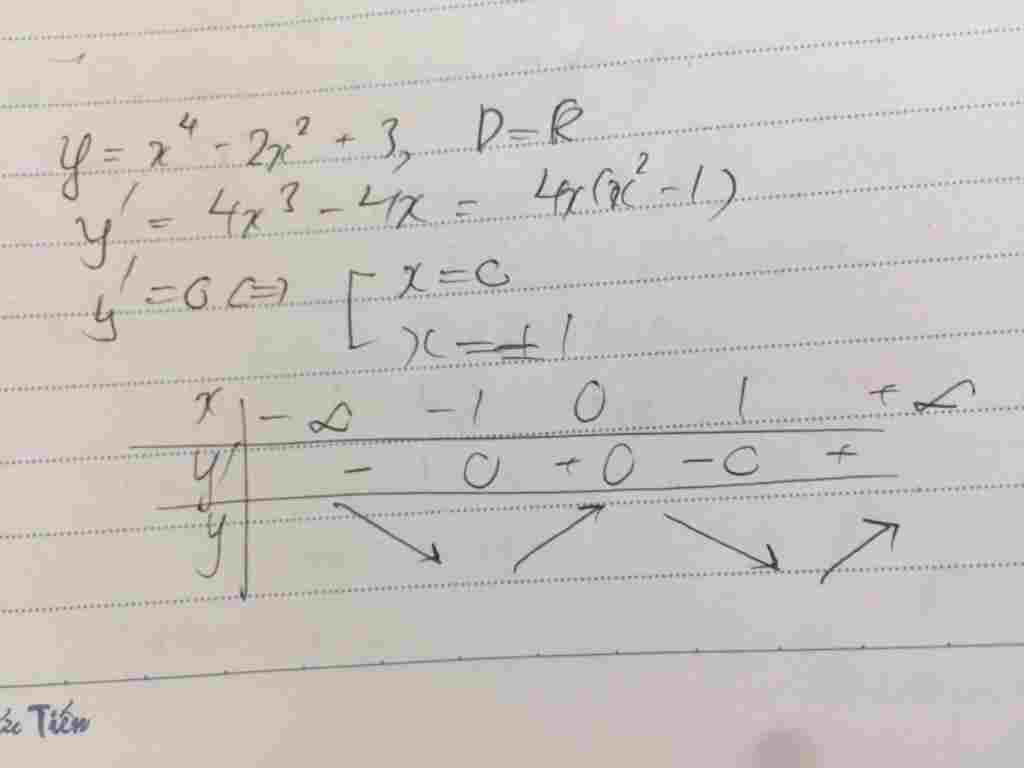 y = x⁴ - 2x² + 3, D = R
y' = 4x³ - 4x = 4x(x² - 1)
y' = 0 <=> [ x = 0
x = ± 1
x | -∞ -1 0 1 +∞
y' | - 0 + 0 - 0 +
y | ↘ ↗ ↘ ↗
Tiến